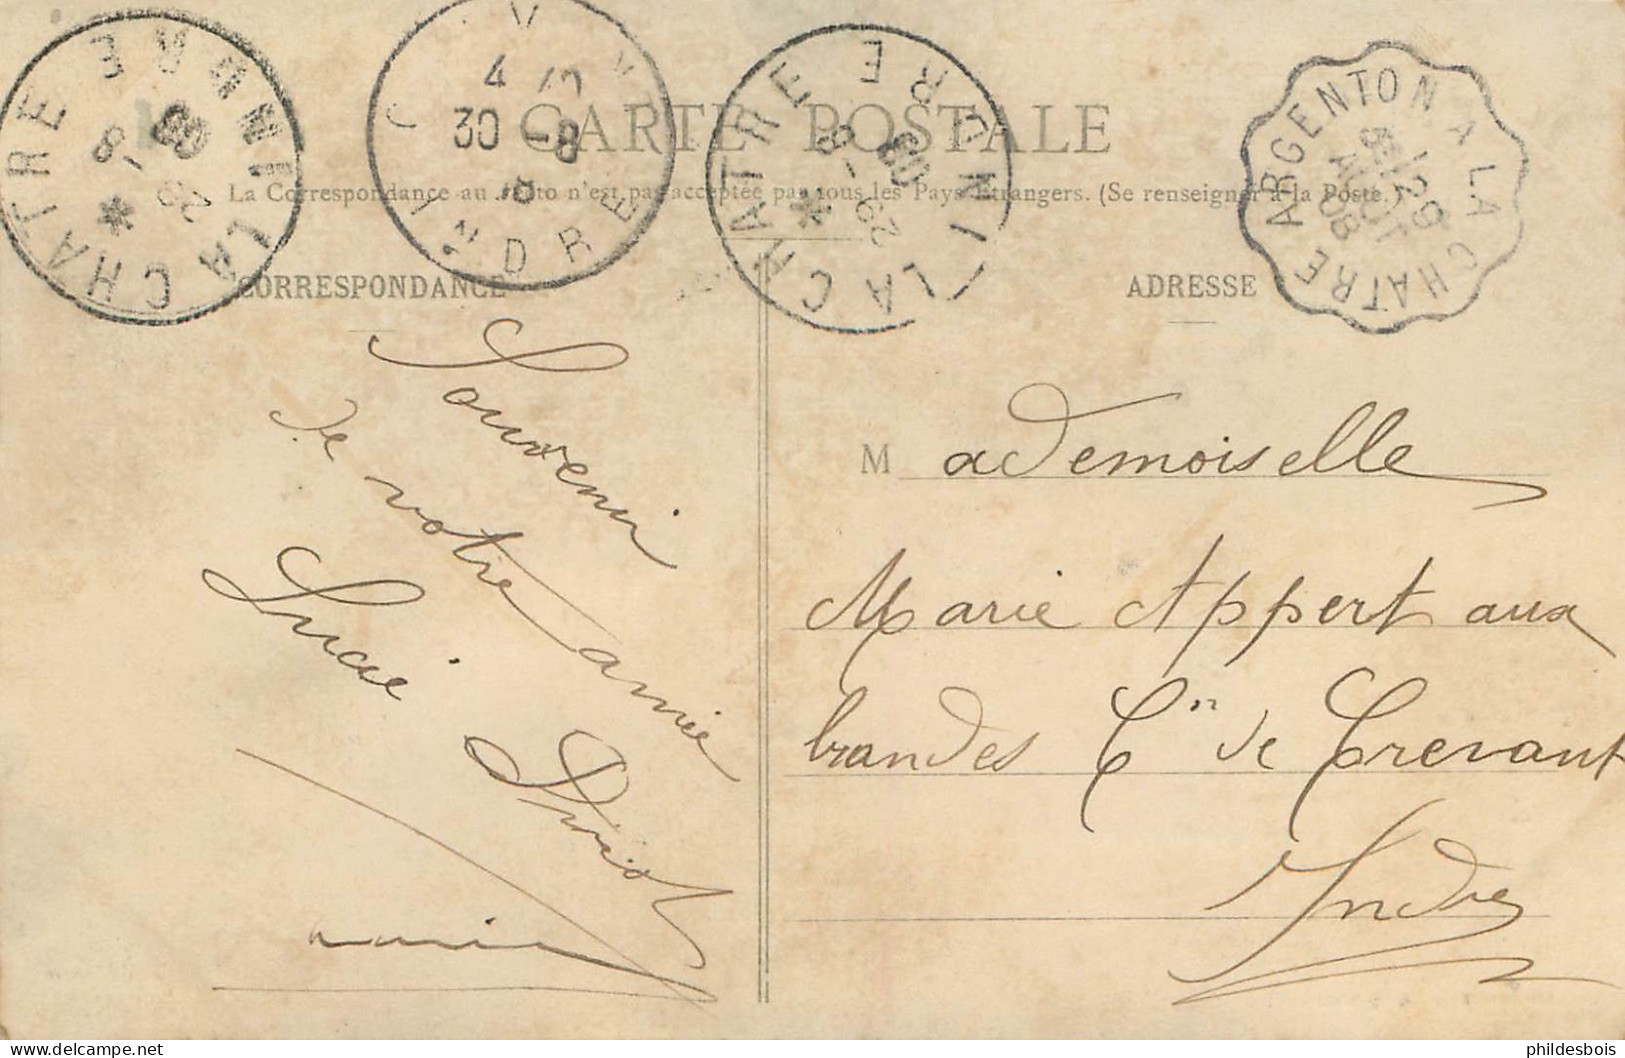 LA CHATRE
INDRE
29 -8
08
4
30 -8
8
INDRE
LA CHATRE
INDRE
29 -8
08
ARGENTON A LA CHATRE
1°
29
AOUT
08
CARTE POSTALE
La Correspondance au recto n'est pas acceptée par tous les Pays Etrangers. (Se renseigner à la Poste.)
CORRESPONDANCE
ADRESSE
Souvenir
de votre amie
Lucie
Mademoiselle
Marie Appert aux
brandes Cⁿ de Crevant
Indre
phildesbois